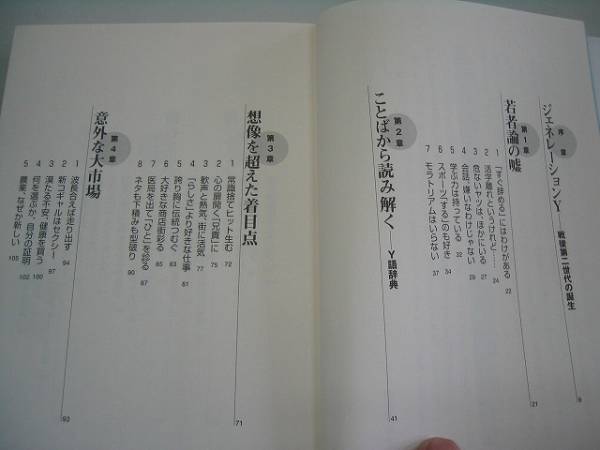 序章
ジェネレーションY 戦後第二世代の誕生 9
第1章
若者論の嘘 21
1 「すぐ辞める」にはわけがある 22
2 活字離れというけれど…… 24
3 危ないヤツは、ほかにいる 27
4 会話、嫌いなわけじゃない 29
5 学ぶ力は持っている 32
6 スポーツ「する」のも好き 34
7 モラトリアムはいらない 37
第2章
ことばから読み解く Y語辞典 41
第3章
想像を超えた着目点 71
1 常識捨てヒット生む 72
2 心の扉開く「兄貴」に 75
3 歓声と熱気、街に活気 77
4 「らしさ」より好きな仕事 81
5 誇り胸に伝統つむぐ 83
6 大好きな商店街彩る 85
7 医局を出て「ひと」を診る 87
8 ネタも下積みも型破り 90
第4章
意外な大市場 93
1 波長合えば走り出す 94
2 新コギャルはセクシー 97
3 漠たる不安、健康を買う 100
4 何を選ぶか、自分の証明 102
5 農業、なぜか新しい 105